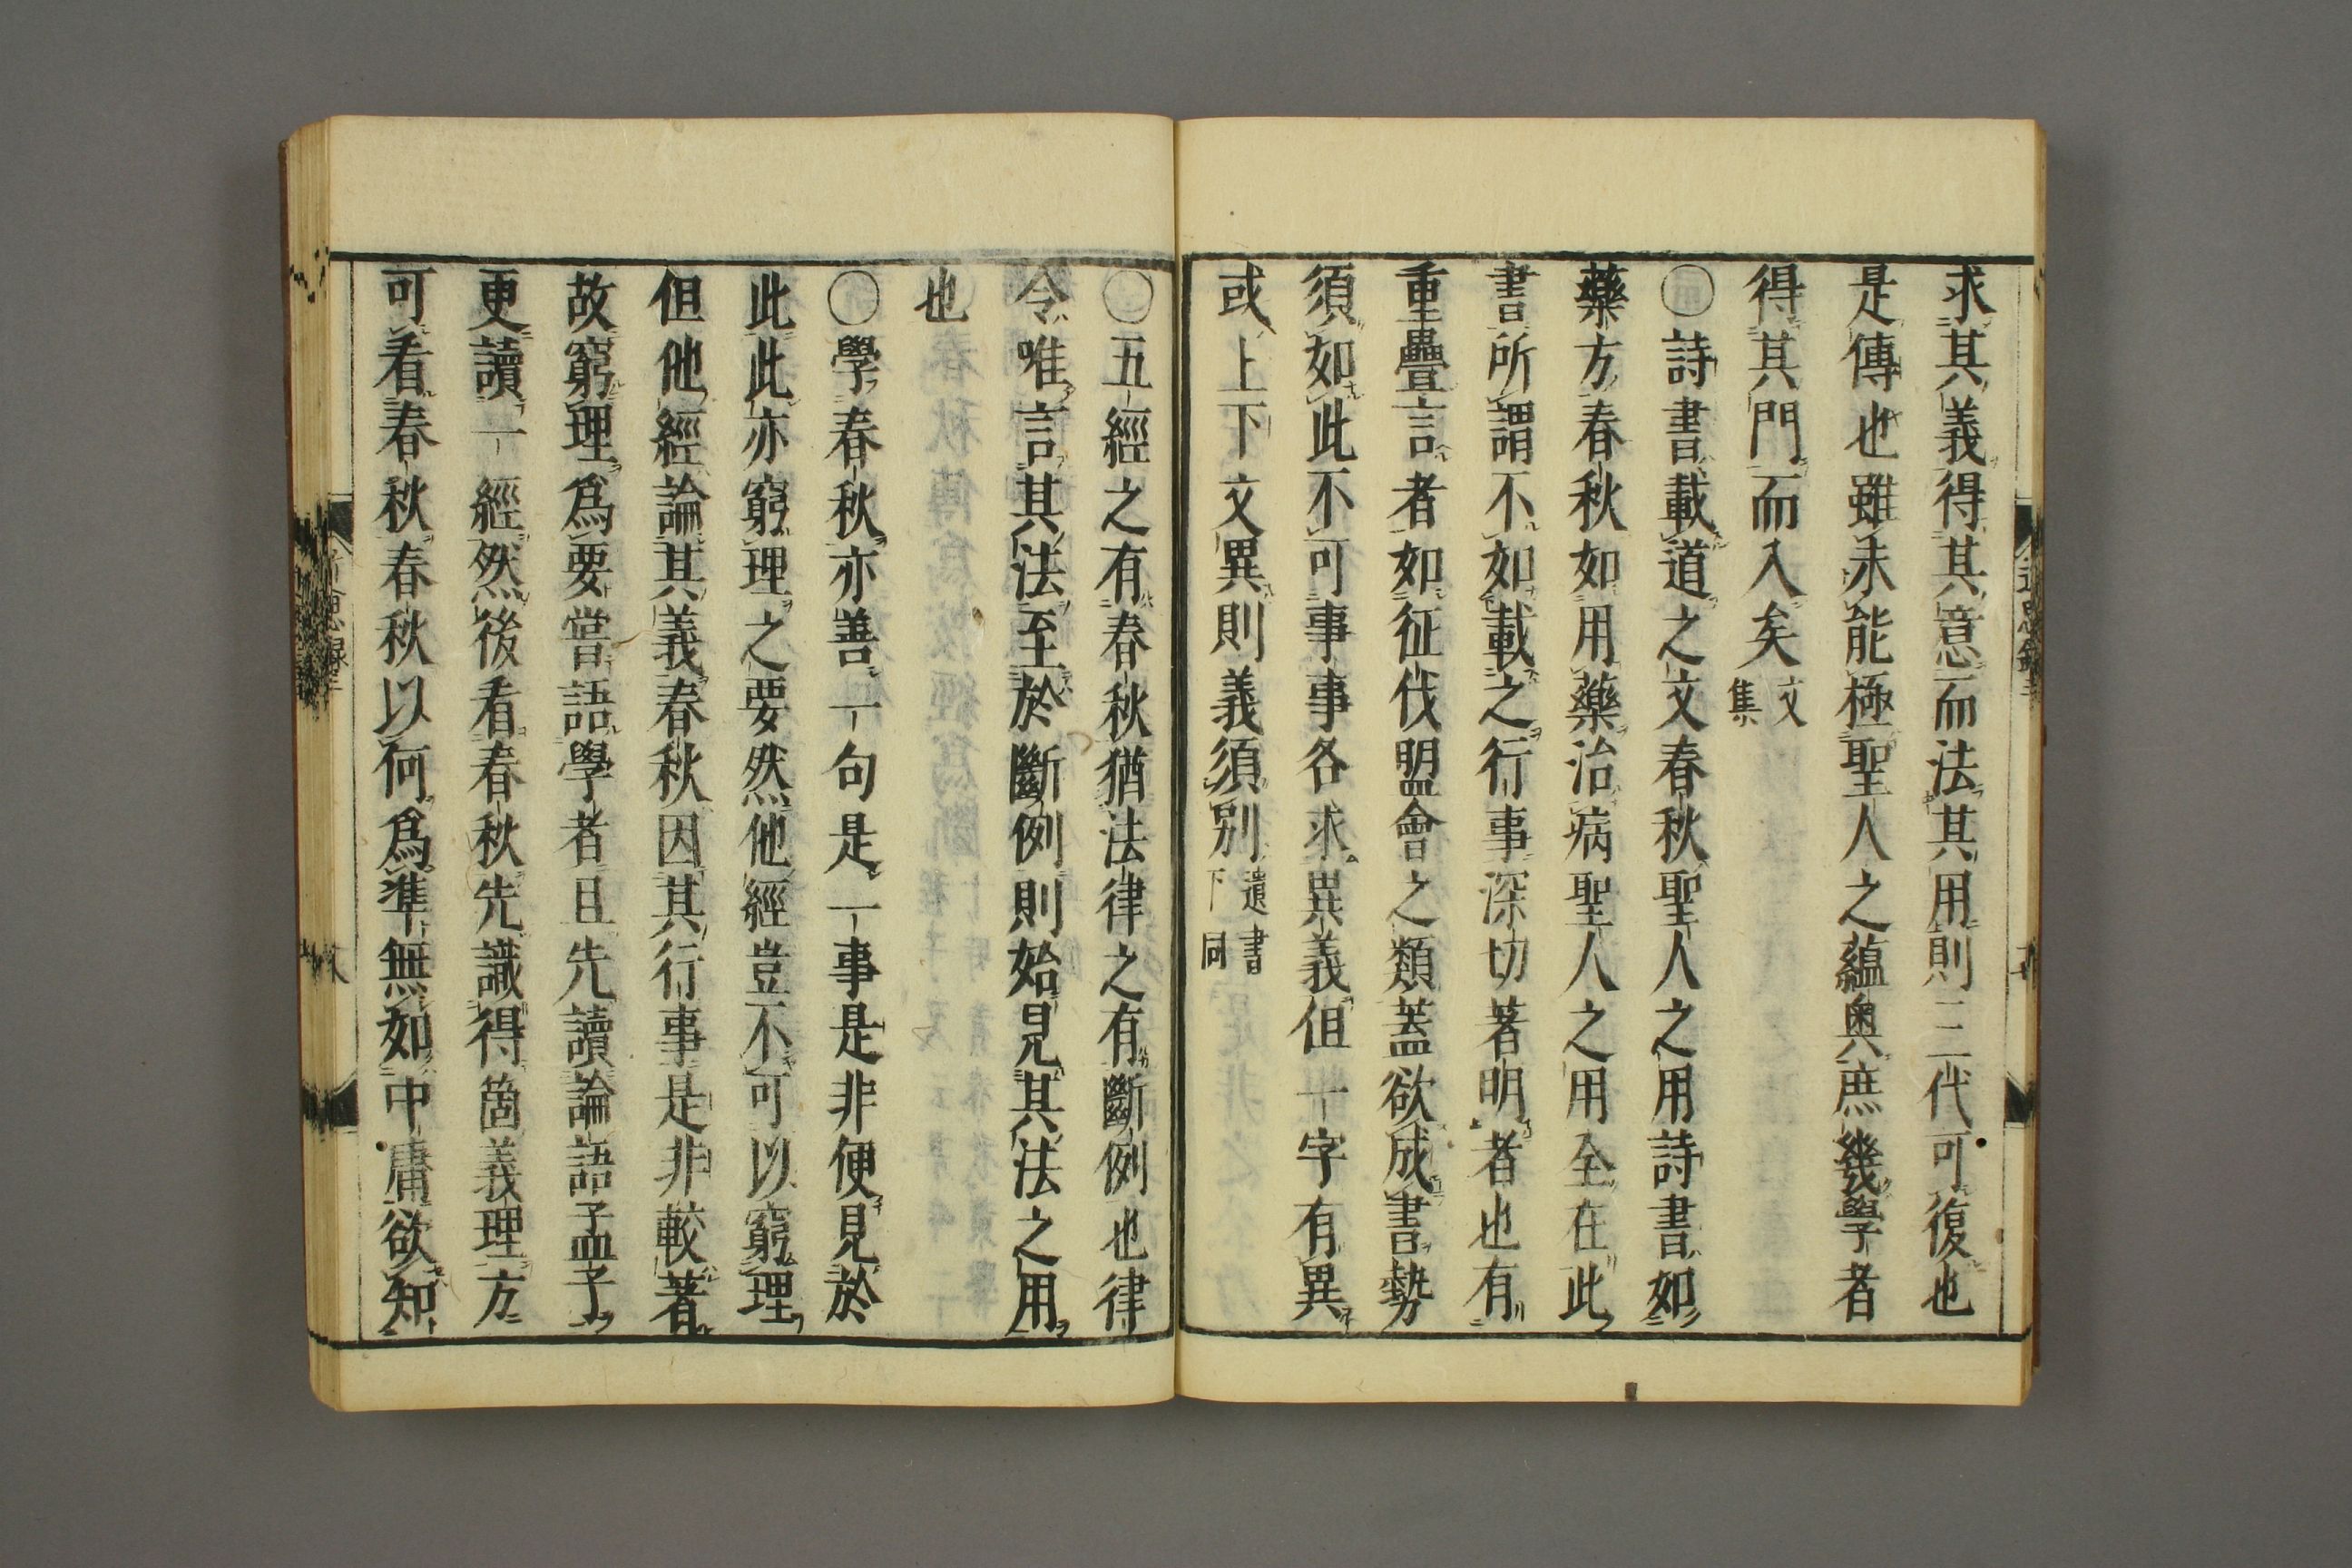 求其義得其意而法其用則三代可復也
是傳也雖未能極聖人之蘊奧庶幾學者
得其門而入矣文集
○詩書載道之文春秋聖人之用詩書如
藥方春秋如用藥治病聖人之用全在此
書所謂不如載之行事深切著明者也有
重疊言者如征伐盟會之類蓋欲成書勢
須如此不可事事各求異義但一字有異
或上下文異則義須別遺書下同
○五經之有春秋猶法律之有斷例也律
令唯言其法至於斷例則始見其法之用
也
○學春秋亦善一句是一事是非便見於
此此亦窮理之要然他經豈不可以窮理
但他經論其義春秋因其行事是非較著
故窮理為要嘗語學者且先讀論語孟子
更讀一經然後看春秋先識得箇義理方
可看春秋春秋以何為準無如中庸欲知